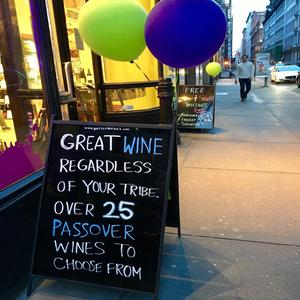 GREAT WINE
REGARDLESS
OF YOUR TRIBE.
OVER 25
PASSOVER
WINES TO
CHOOSE FROM
FREE